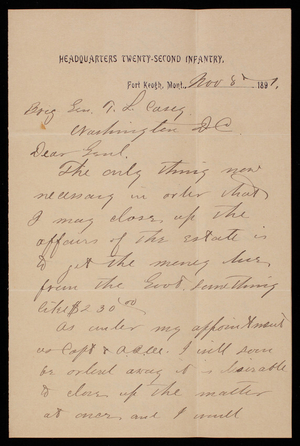 HEADQUARTERS TWENTY-SECOND INFANTRY,
Fort Keogh, Mont., Nov. 8th, 1891,
Brig Gen. T. L. Casey
Washington D.C.
Dear Genl.
The only thing now
necessary in order that
I may close up the
affairs of the estate is
to get the money due
from the Govt. something
like $230 00
As under my appointment
as Capt & I will soon
be ordered away it is desirable
to close up the matter
at once, and I would